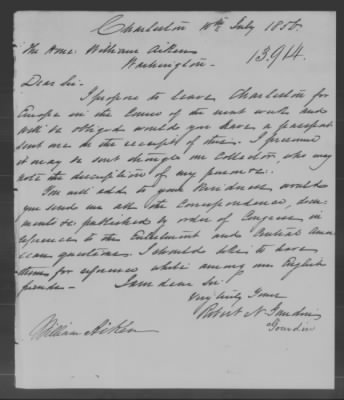 Charleston 10th July 1856.
The Honbl William Aiken
Washington -
13914.
Dear Sir -
I propose to leave Charleston for
Europe in the course of the next week and
will be obliged would you have a passport
sent me on the receipt of this. I presume
it may be sent through our Collector, who may
note the description of my person.
You will add to your kindness would
you send me all the correspondence, docu-
ments &c published by order of Congress in
reference to the Enlistment and Central Ame-
rican questions. I should like to have
them for reference while among my English
friends - I am dear Sir
Very truly Yours
Robert N. Gourdin
Gourdin
William Aiken